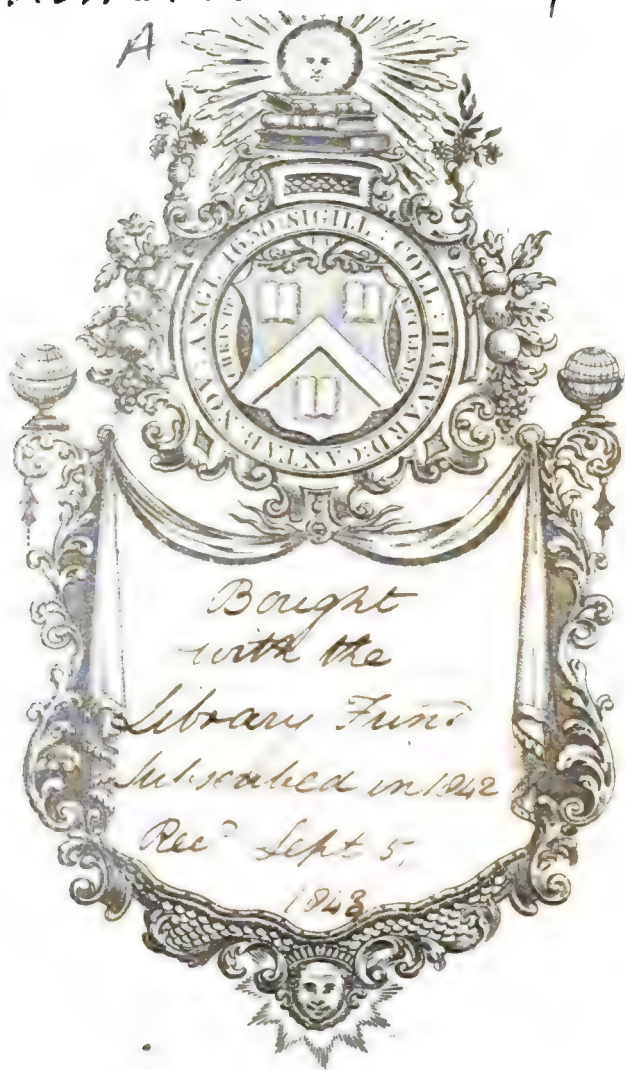 A
SIGILL : COLL : HARVARD : CANTAB : NOV : ANGL : 1650
Bought
with the
Library Fund
Subscribed in 1842
Rec^d Sept 5,
1843